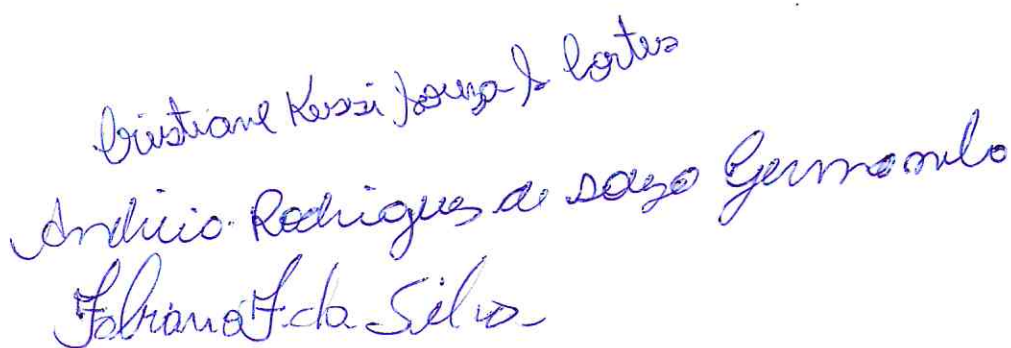 Cristiane Kessi Souza S Cortes
Andreia Rodrigues de Souza Germano
Fabiana F. da Silva